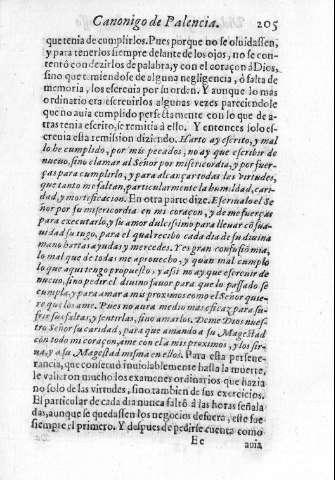 Canonigo de Palencia. 205
que tenia de cumplirlos. Pues porque no se oluidassen,
y para tenerlos siempre delante de los ojos, no se con-
tentó con dezirlos de palabra, y con el coraçon à Dios,
sino que temiendose de alguna negligencia, ò falta de
memoria, los escreuia por su orden. Y aunque lo mas
ordinario era escreuirlos algunas vezes pareciendole
que no auia cumplido perfectamente con lo que de a-
tras tenia escrito, se remitia à ello. Y entonces solo es-
creuia esta remission diziendo. Harto ay escrito, y mal
lo he cumplido, por mis pecados, no ay que escribir de
nueuo, sino clamar al Señor por misericordia, y por fuer-
ças para cumplirlo, y para alcançar todas las virtudes,
que tanto me faltan, particularmente la humildad, cari-
dad, y mortificacion. En otra parte dize. Escriualo el Se
ñor por su misericordia en mi coraçon, y de me fuerças
para executarlo, y su amor dulcissimo para lleuar cõ sua-
uidad su yugo, para el qual recibo cada dia de su diuina
mano hartas ayudas y mercedes. Y es gran confusió mia,
lo mal que de todas me aprouecho, y quan mal cumplo
lo que aqui tengo propuesto: y assi no ay que escreuir de
nueuo, sino pedir el diuino fauor para que lo passado se
cumpla, y para amar a mis proximos como el Señor quie-
re que los ame. Pues no aura medio mas eficaz para su-
frir sus faltas, y sentirlas, sino amarlos. Deme Dios nues-
tro Señor su caridad, para que amando a su Magestad
con todo mi coraçon, ame con ella mis proximos, y los sir-
ua, y a su Magestad misma en ellos. Para esta perseue-
rancia, que conseruó inuiolablemente hasta la muerte,
le valieron mucho los examenes ordinarios que hazia
no solo de las virtudes, sino tambien de sus exercicios.
El particular de cada dia nunca faltò à las horas señala
das, aunque se quedassen los negocios de fuera, este fue
siempre el primero. Y despues de pedirse cuenta como
Ee auia